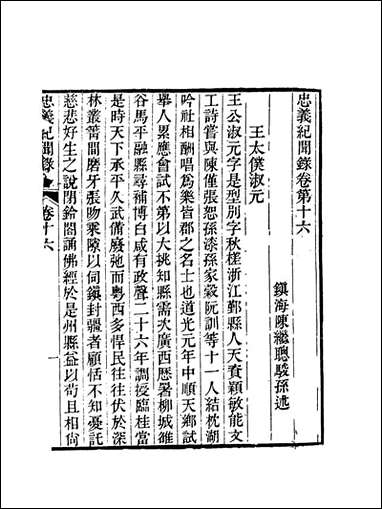 忠義紀聞錄卷第十六
鎮海陳繼聰駿孫述
王太僕淑元
王公淑元字是型別字秋槎浙江鄞縣人天資穎敏能文
工詩嘗與陳僅張恕孫漆孫家穀阮訓等十一人結枕湖
吟社相酬唱爲樂皆郡之名士也道光元年中順天鄕試
舉人累應會試不第以大挑知縣需次廣西歷署柳城雒
谷馬平融縣尋補博白咸有政聲二十六年調授臨桂當
是時天下承平久武備廢弛而粵西多悍民往往伏於深
林叢箐間磨牙張吻乘隙以伺鎮封疆者顧恬不知憂託
慈悲好生之說閉鈴閤誦佛經於是州縣益以苟且相尙
忠義紀聞錄 卷十六 一